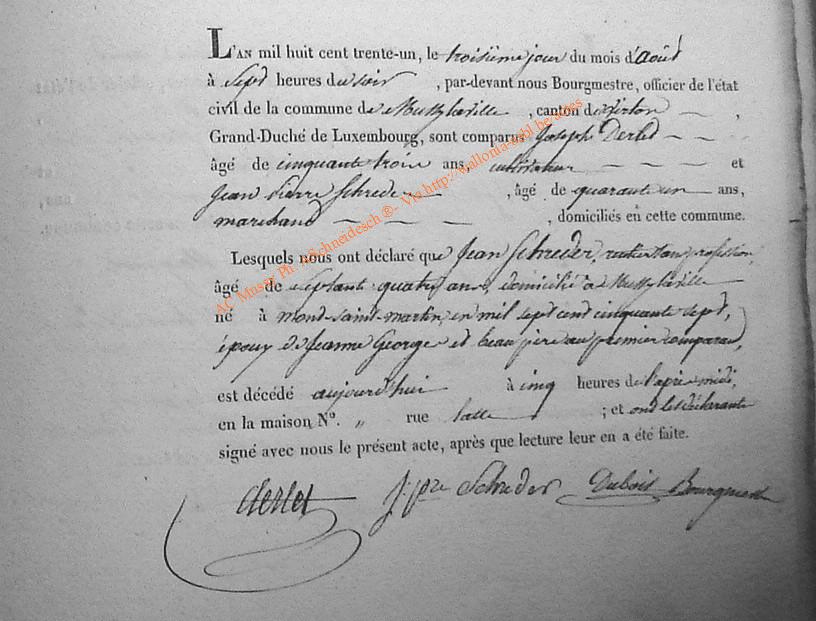 L'AN mil huit cent trente-un, le troisième jour du mois d'août
à sept heures du soir , par-devant nous Bourgmestre, officier de l'état
civil de la commune de Mussylaville , canton de Virton ,
Grand-Duché de Luxembourg, sont comparus Joseph Derlet
âgé de cinquante trois ans, cultivateur et
Jean Pierre Schreder , âgé de quarante un ans,
marchand , domiciliés en cette commune.
Lesquels nous ont déclaré que Jean Schreder, rentier sans profession,
âgé de septante quatre ans, domicilié à Mussylaville
né à mont-saint-martin, en mil sept cent cinquante sept,
époux de Jeanne George et beau père au premier comparant,
est décédé aujourd'hui à cinq heures de l'après midi,
en la maison No. „ rue ; et ont les déclarants
signé avec nous le présent acte, après que lecture leur en a été faite.
derlet J. pre Schreder Dubois Bourgmestre
AC Musay Ph. Schneidesch ®- Via http://wallonia-asbl.be/actes